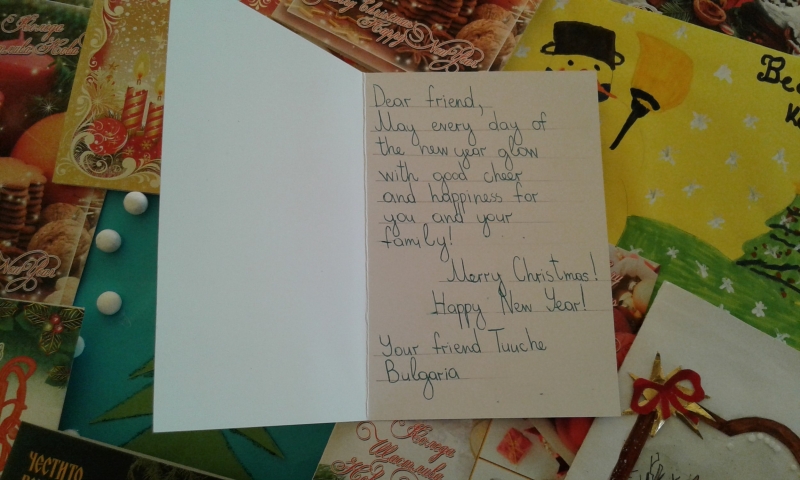 Dear friend,
May every day of
the new year glow
with good cheer
and happiness for
you and your
family!
Merry Christmas!
Happy New Year!
Your friend Tuuche
Bulgaria
Happy New Year
New Year
Весела
ЧЕСТИТО